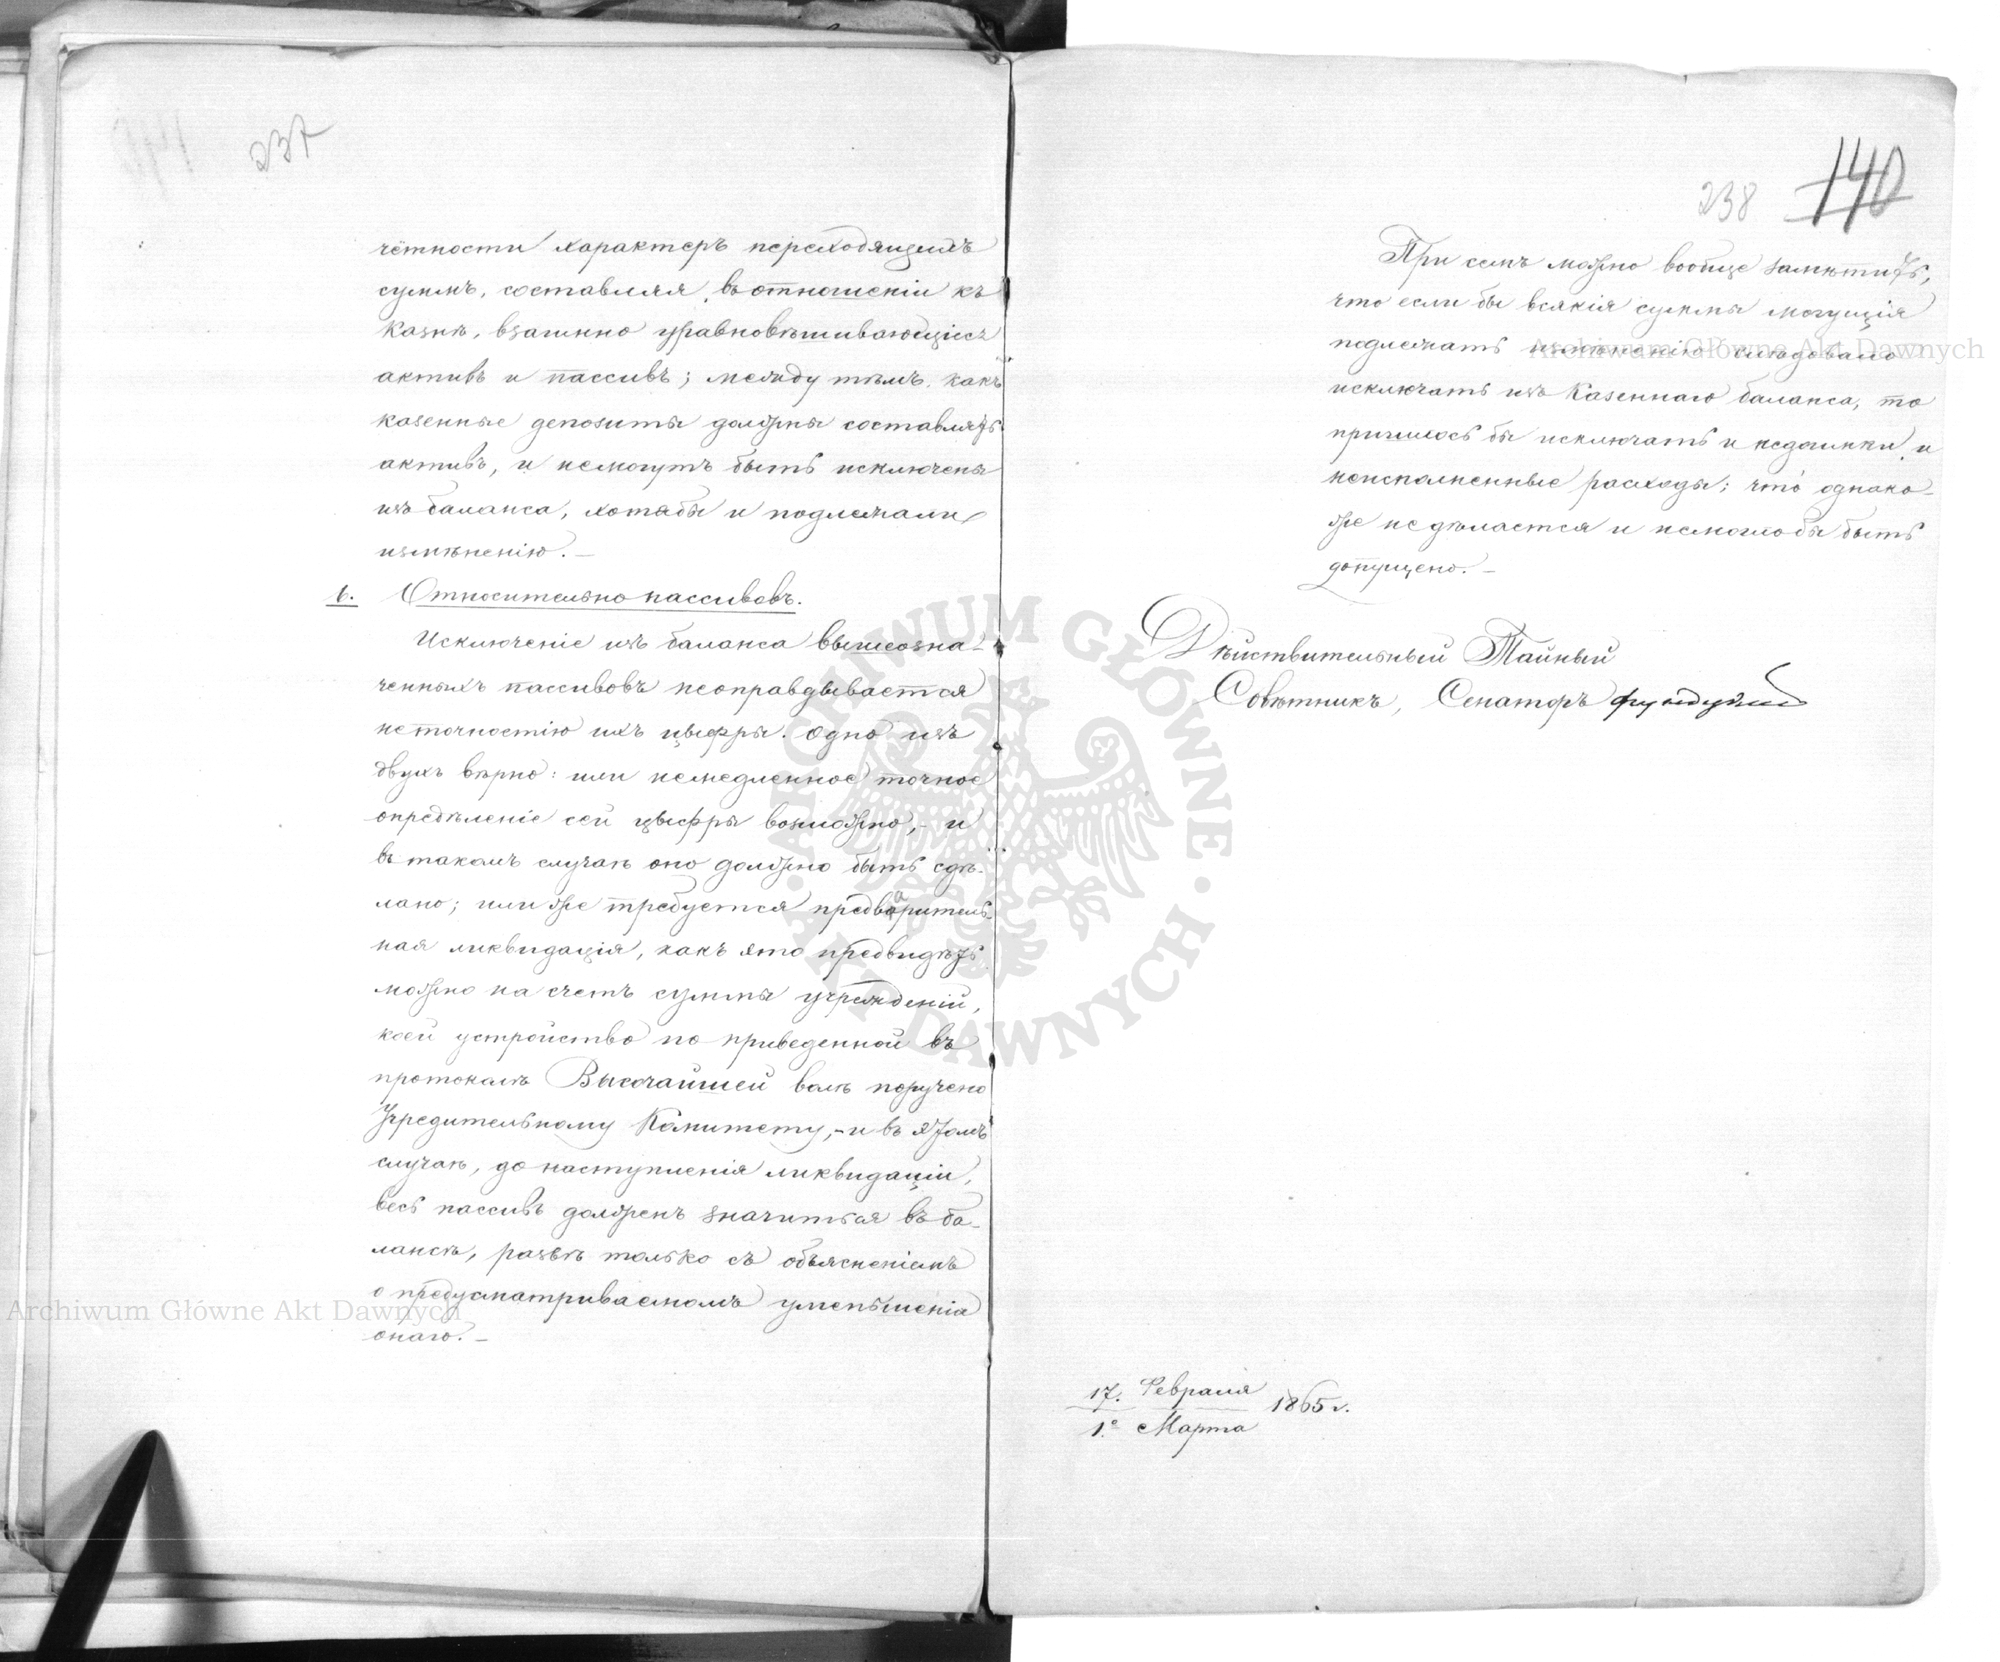 237
чётности характеръ переходящихъ
суммъ, составляя, въ отношеніи къ
казнѣ, взаимно уравновѣшивающіеся
активъ и пассивъ; между тѣмъ какъ
казенные депозиты должны составлять
активъ, и немогутъ быть исключены
изъ баланса, хотябы и подлежали
измѣненію. –
Относительно пассивовъ.
Исключеніе изъ баланса вышеозна-
ченныхъ пассивовъ неоправдывается
неточностію ихъ цыфры. Одно изъ
двухъ вѣрно: или немедленное точное
опредѣленіе сей цыфры возможно, – и
въ такомъ случаѣ оно должно быть сдѣ-
лано; или же требуется предваритель-
ная ликвидація, какъ это предвидѣть
можно на счетъ суммы учрежденій,
коей устройство по приведенной въ
протоколѣ Высочайшей волѣ поручено
Учредительному Комитету, – и въ этомъ
случаѣ, до наступленія ликвидаціи,
весь пассивъ долженъ значиться въ ба-
лансѣ, развѣ только съ объясненіемъ
о предусматриваемомъ уменьшеніи
онаго. –
238 140
При семъ можно вообще замѣтить,
что если бы всякія суммы могущія
подлежать измѣненію слѣдовало
исключать изъ Казеннаго баланса, то
пришлось бы исключать и недоимки и
неисполненные расходы; что однако-
же не дѣлается и немоглобы быть
допущено. –
Дѣйствительный Тайный
Совѣтникъ, Сенаторъ
17. Февраля
1865 г.
1.º Марта
Archiwum Główne Akt Dawnych
Archiwum Główne Akt Dawnych
ARCHIWUM GŁÓWNE · AKT DAWNYCH ·